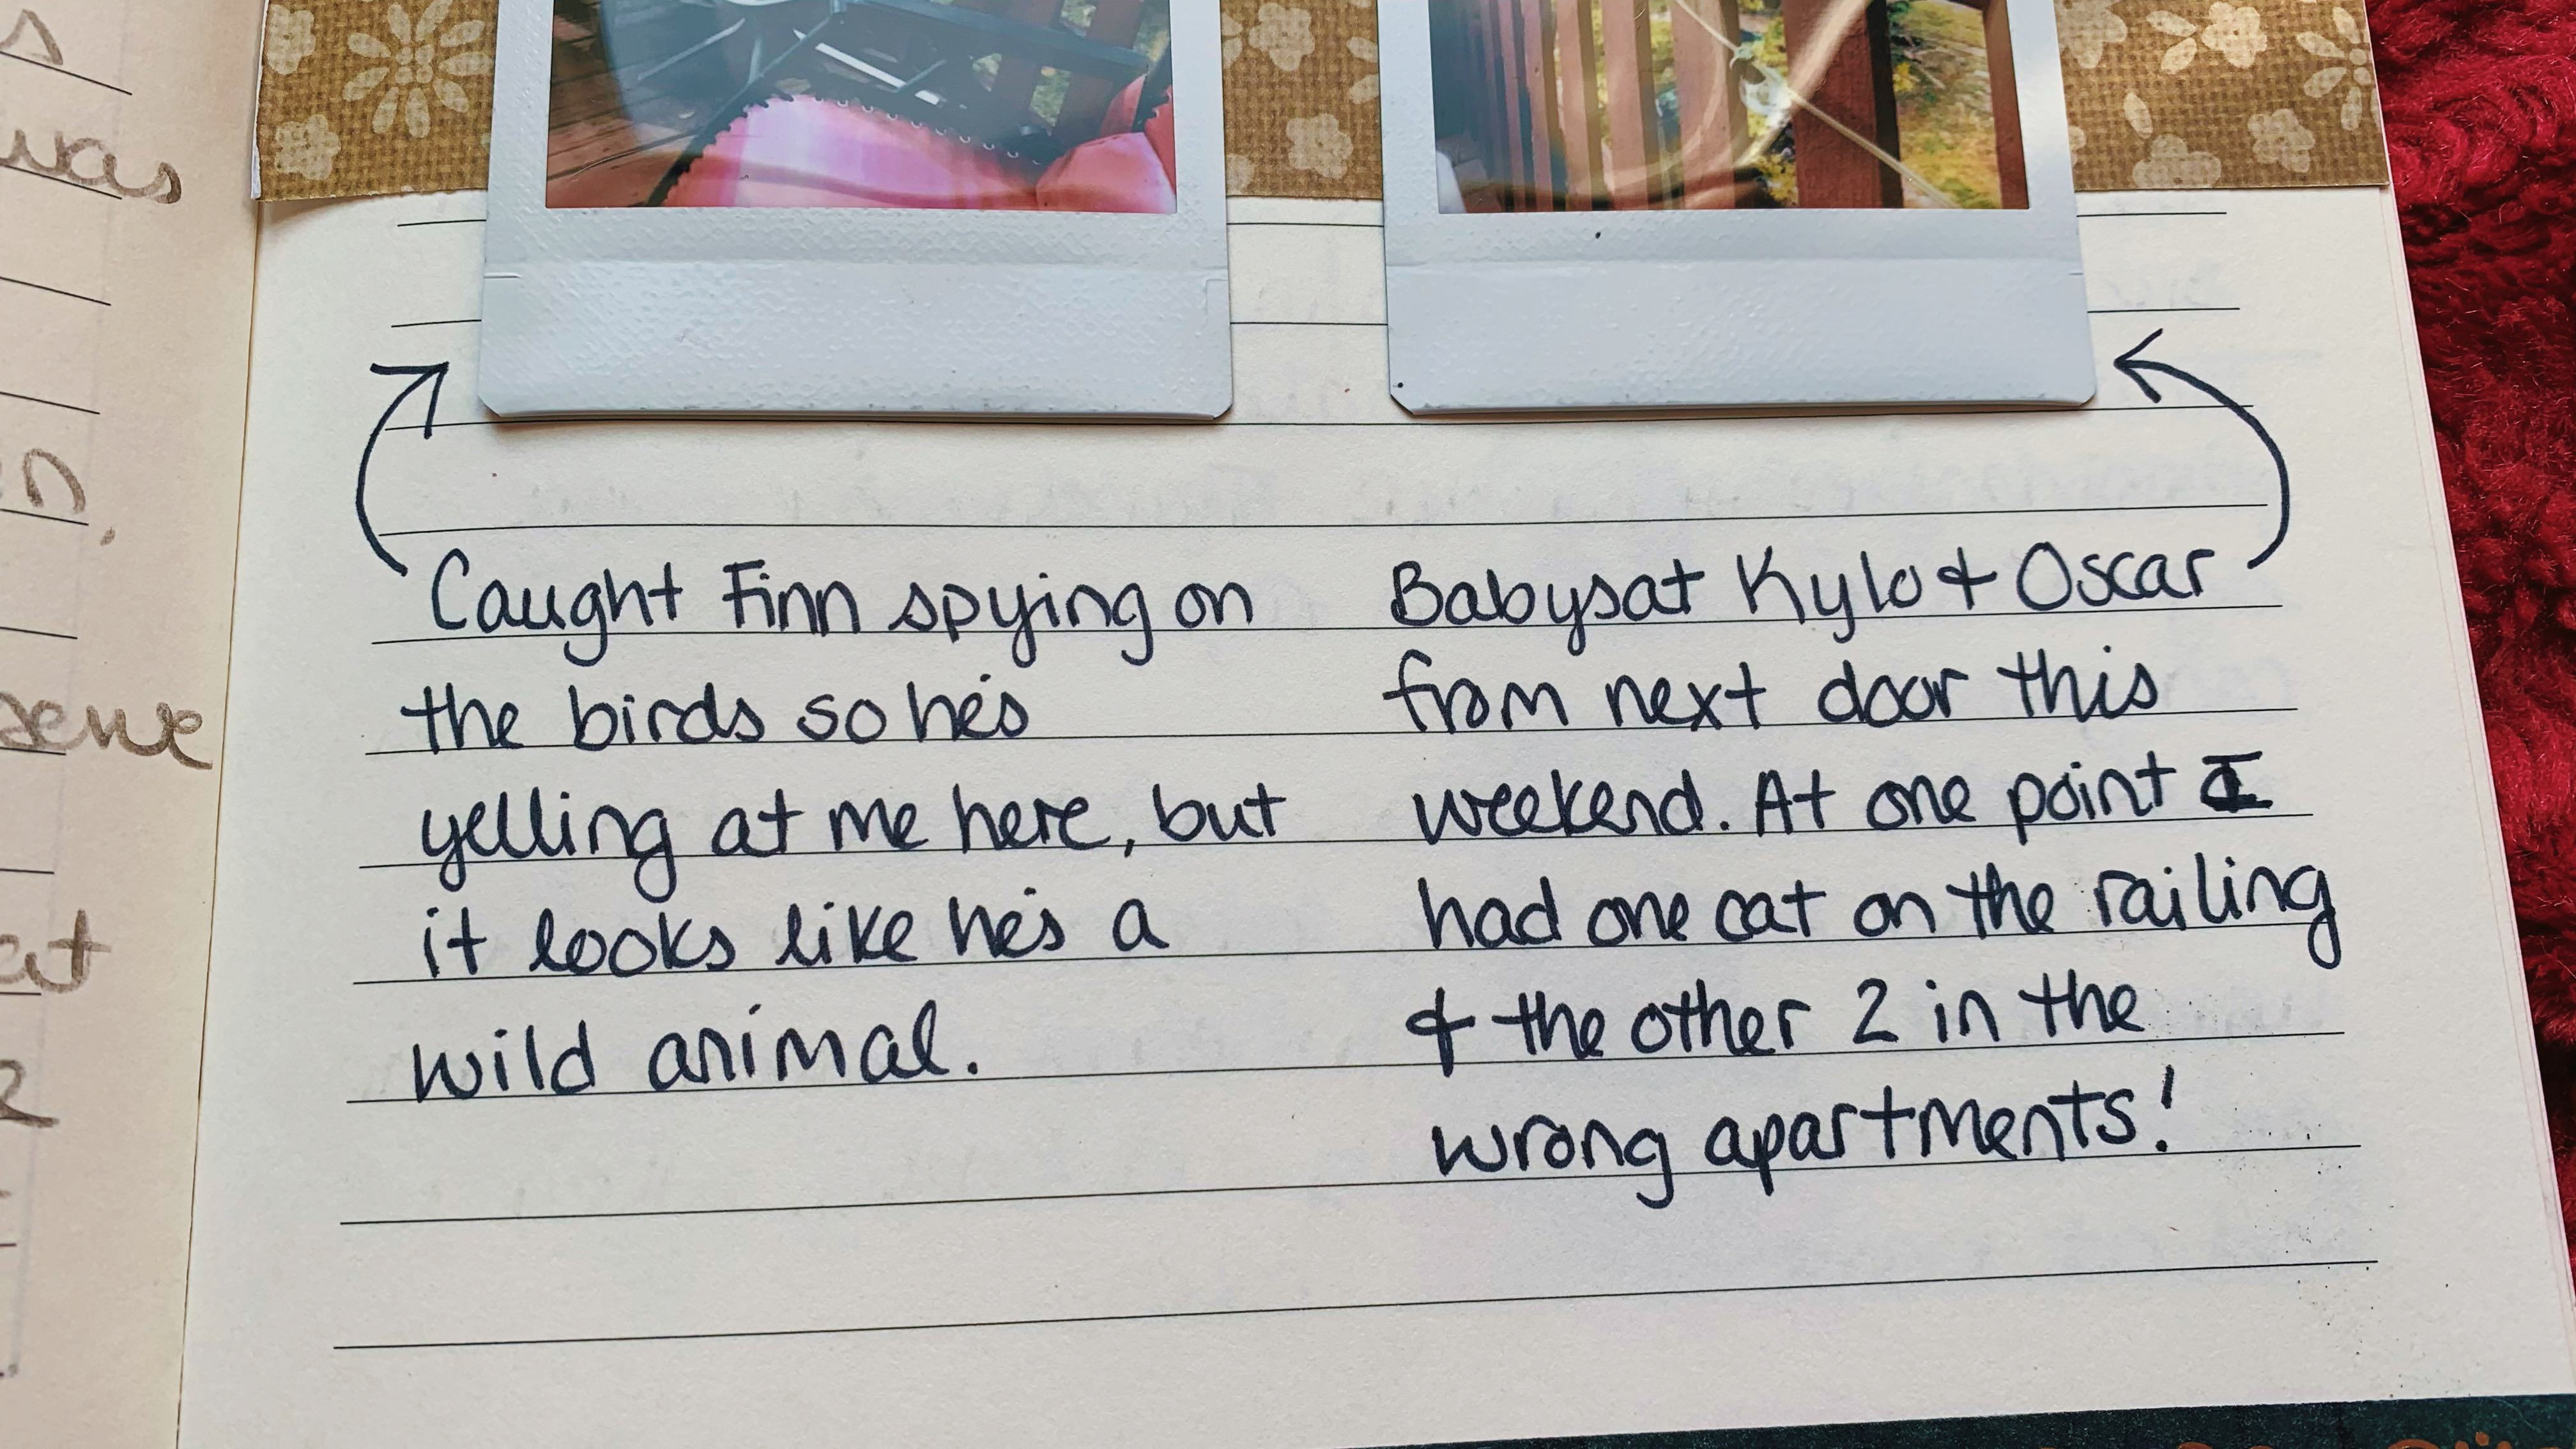 was
at
Caught Finn spying on
the birds so he's
yelling at me here, but
it looks like he's a
wild animal.
Babysat Kylo & Oscar
from next door this
weekend. At one point I
had one cat on the railing
& the other 2 in the
wrong apartments!